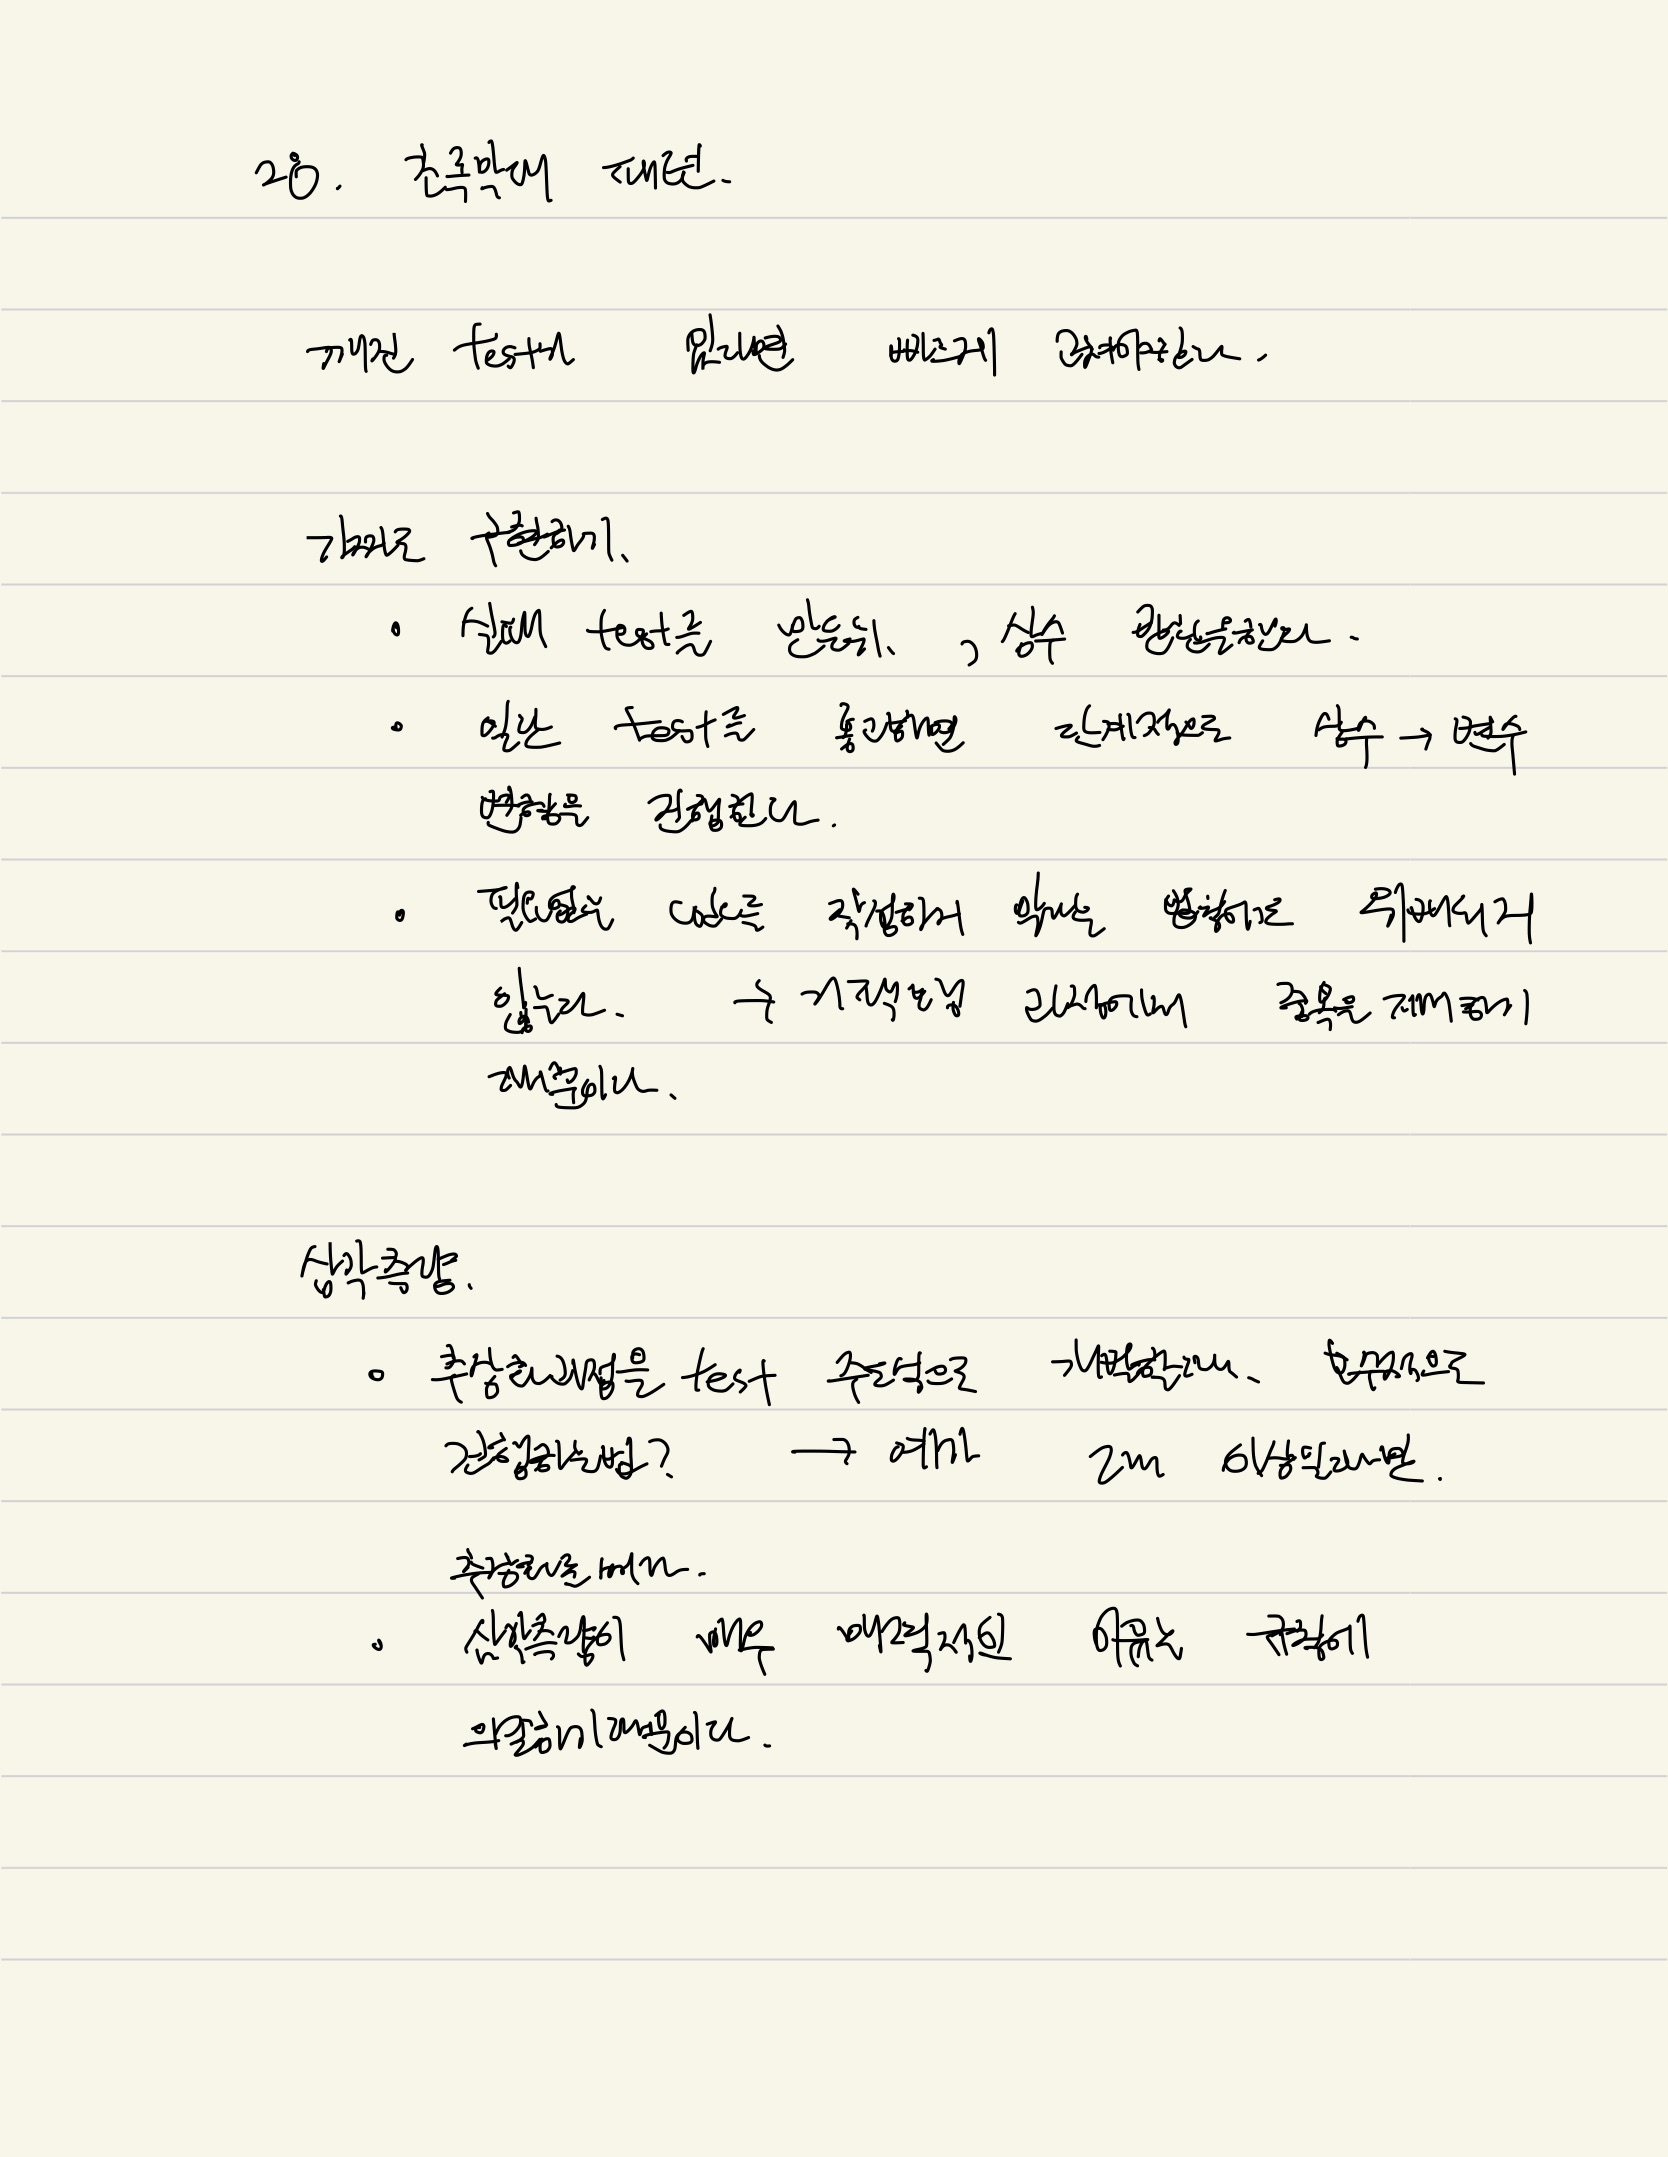 28. 초록막대 패턴.
깨진 test가 있다면 빠르게 고쳐야한다.
가짜로 구현하기.
• 실패 test를 만든뒤, 상수 반환을한다.
• 일단 test를 통과하면 단계적으로 상수 → 변수
변환을 진행한다.
• 필요없는 code를 작성하지 않는 방향에도 위배되지
않는다. → 기적보법 과정에서 중복을 제거하기
때문이다.
삼각측량.
• 추상화과정을 test 주도적으로 개발할때, 보수적으로
진행하는법? → 예가 2개 이상일때만.
추상화를 해라.
• 삼각측량이 매우 매력적인 이유는 규칙에
의함이기때문이다.